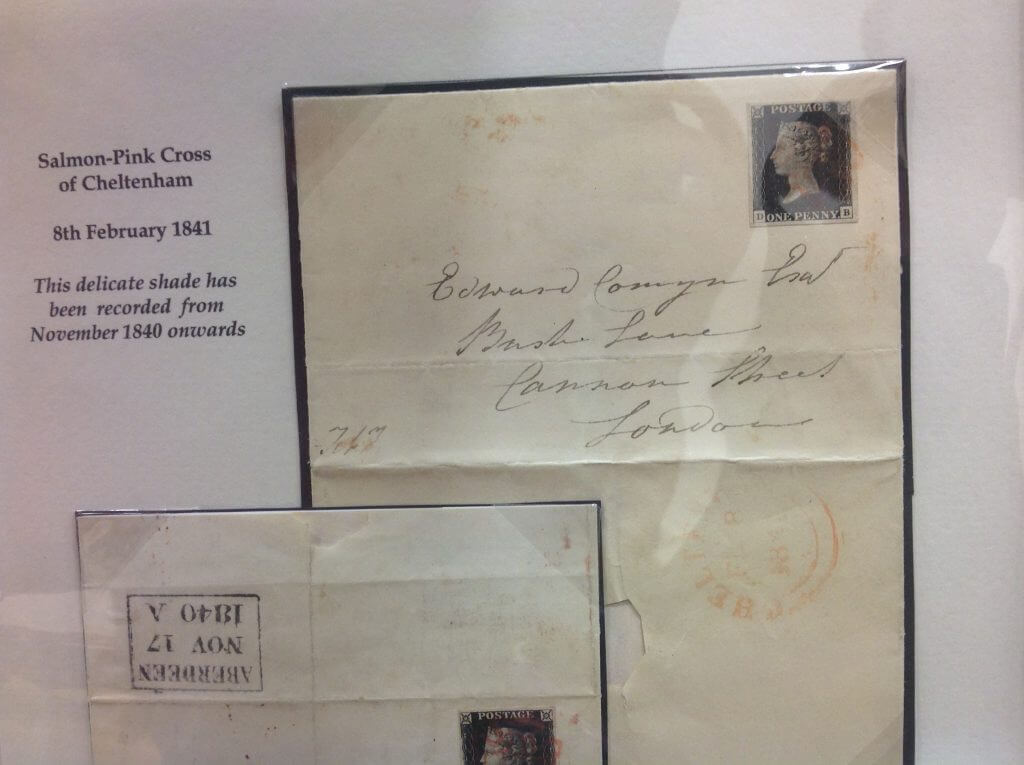 Salmon-Pink Cross
of Cheltenham
8th February 1841
This delicate shade has
been recorded from
November 1840 onwards
POSTAGE
D ONE PENNY B
Edward Comyn Esqr
Bush Lane
Cannon Street
London
CHEL
ABERDEEN
NOV 17
1840 A
POSTAGE